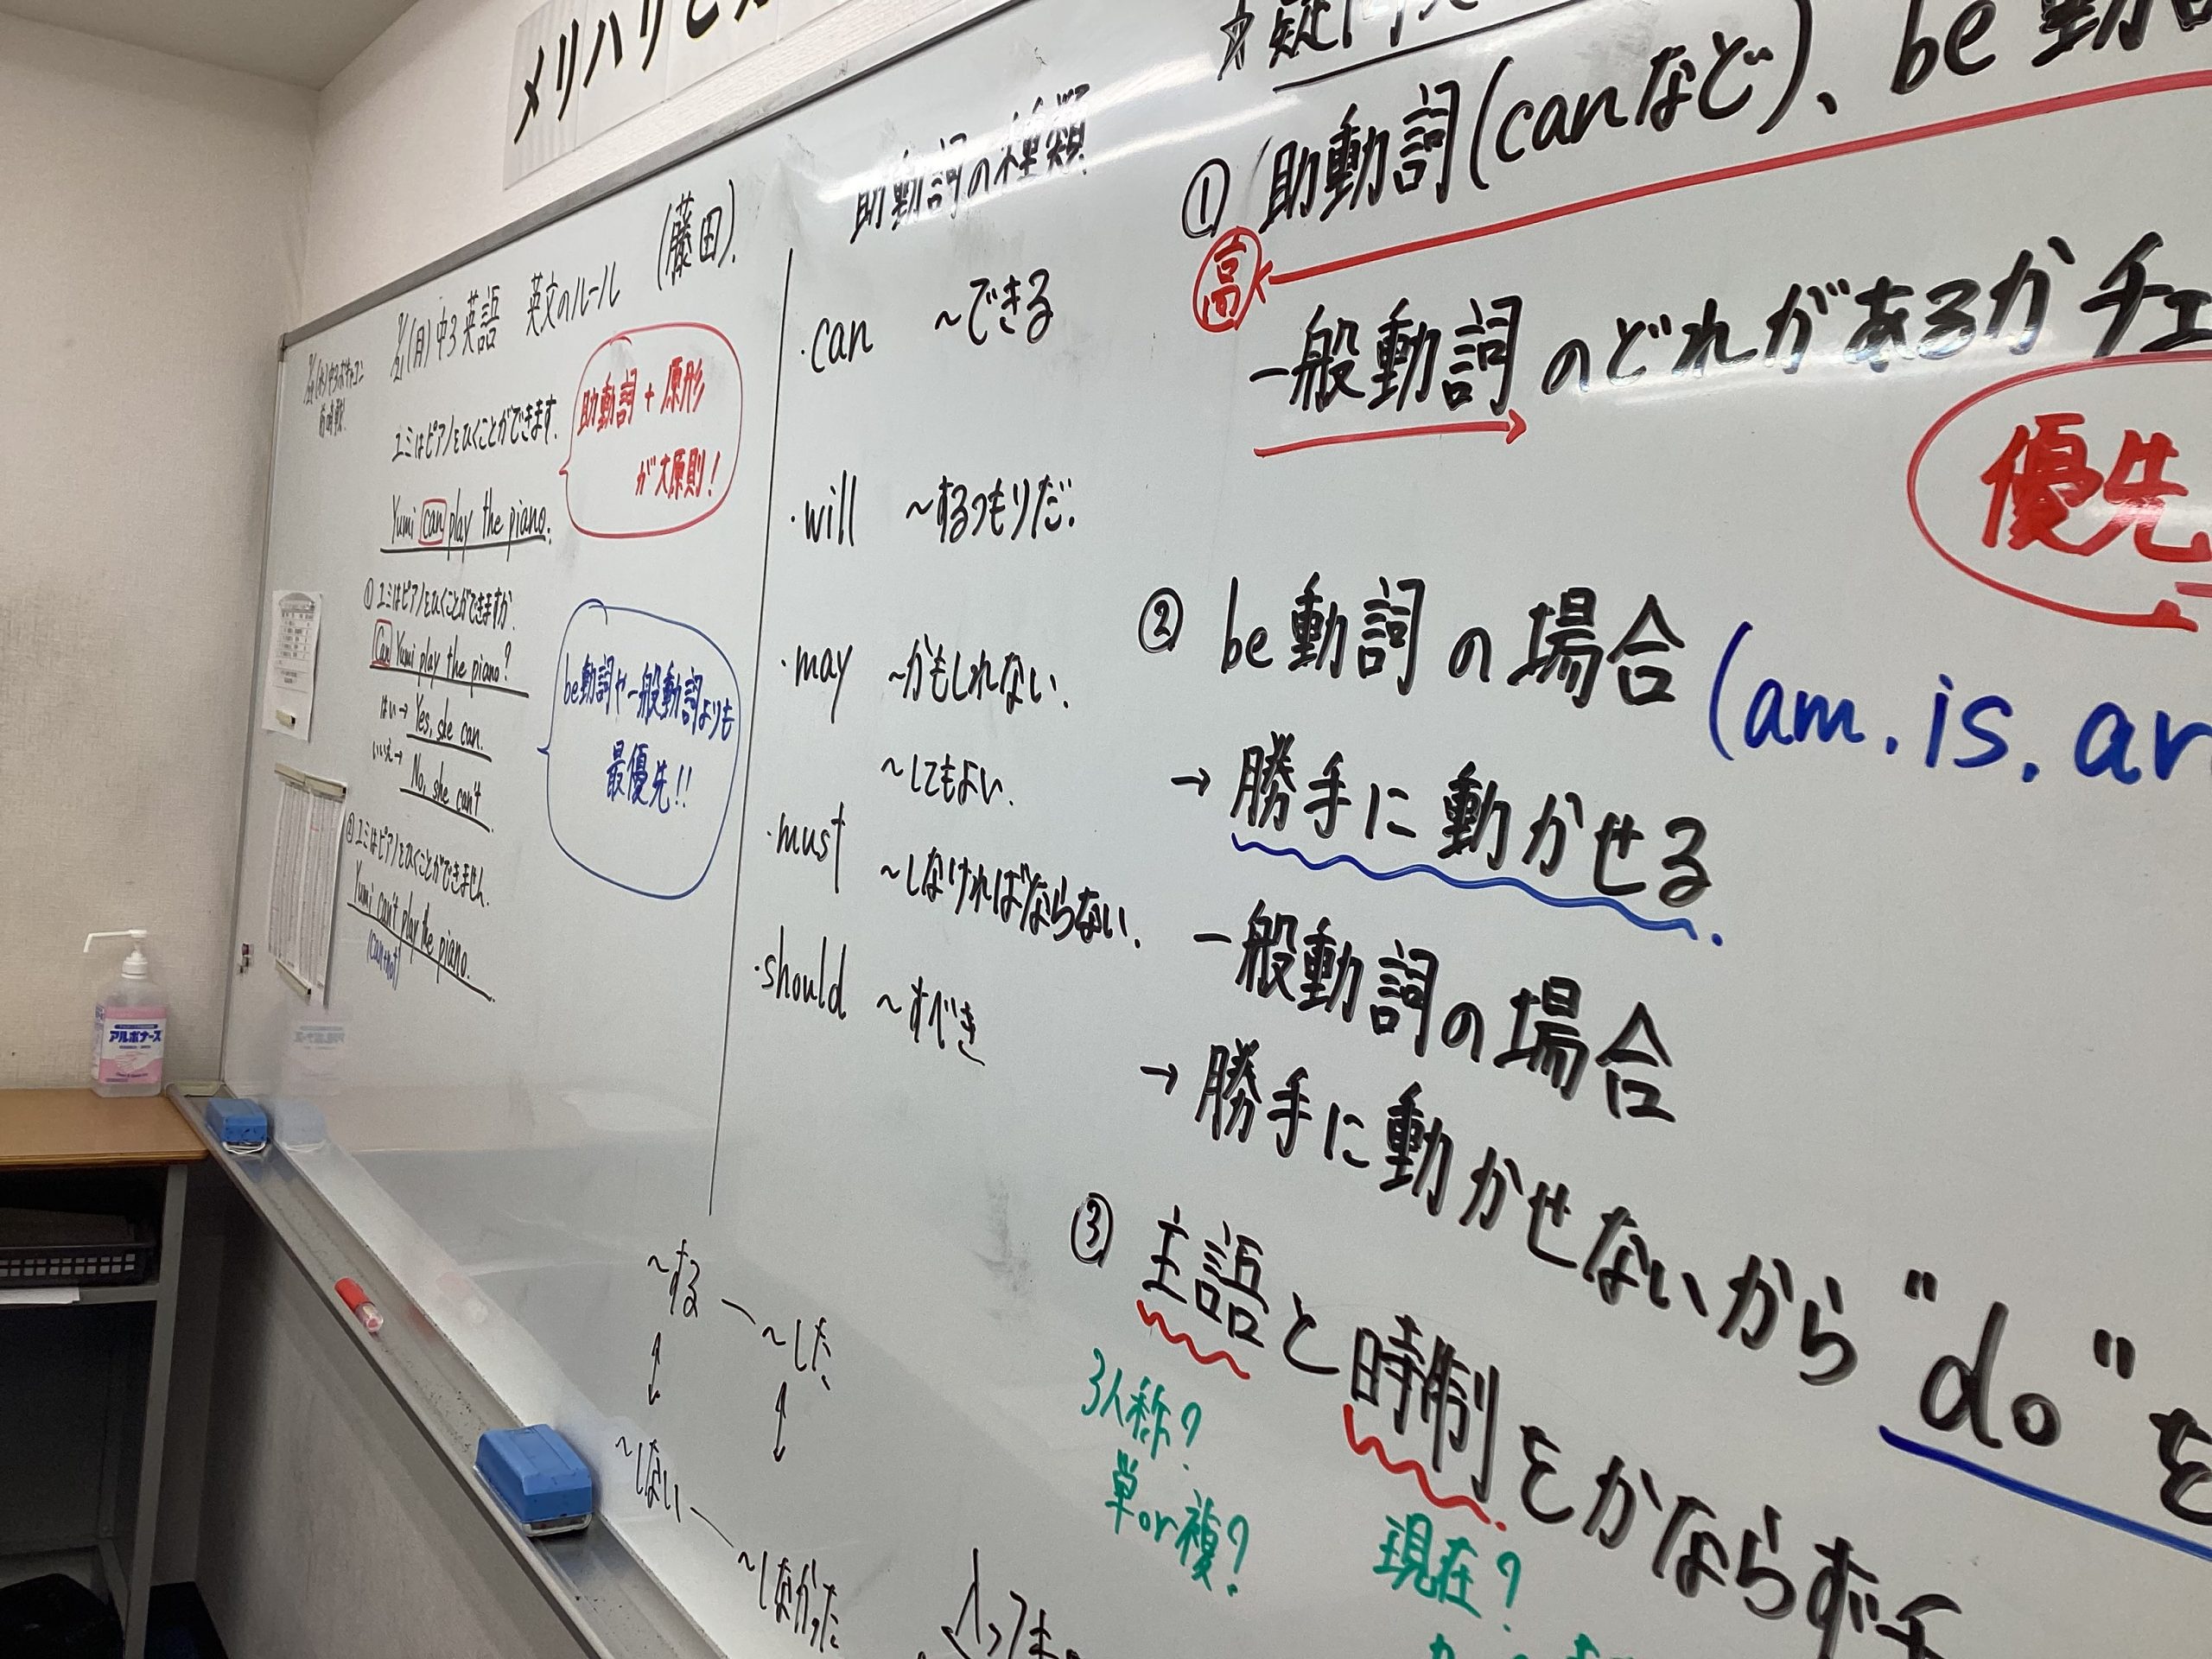 メリハリ
(月)中3英語 英文のルール (藤田).
ユミはピアノをひくことができます.
Yumi can play the piano.
助動詞+原形
が大原則!
① ユミはピアノをひくことができますか.
Can Yumi play the piano?
はい→ Yes, she can.
いいえ→ No, she can't
be動詞や一般動詞よりも
最優先!!
② ユミはピアノをひくことができません.
Yumi can't play the piano.
(can+not)
助動詞の種類
・can ~できる
・will ~するつもりだ.
・may ~かもしれない.
~してもよい.
・must ~しなければならない.
・should ~すべき
~する ~した
~しない ~しなかった
① 助動詞(canなど)、be動
高
一般動詞のどれがあるかチェ
優先
② be動詞の場合 (am. is. ar
→ 勝手に動かせる
一般動詞の場合
→ 勝手に動かせないから "do" を
③ 主語と時制をかならずチ
3人称?
単or複?
現在?
アルボナース